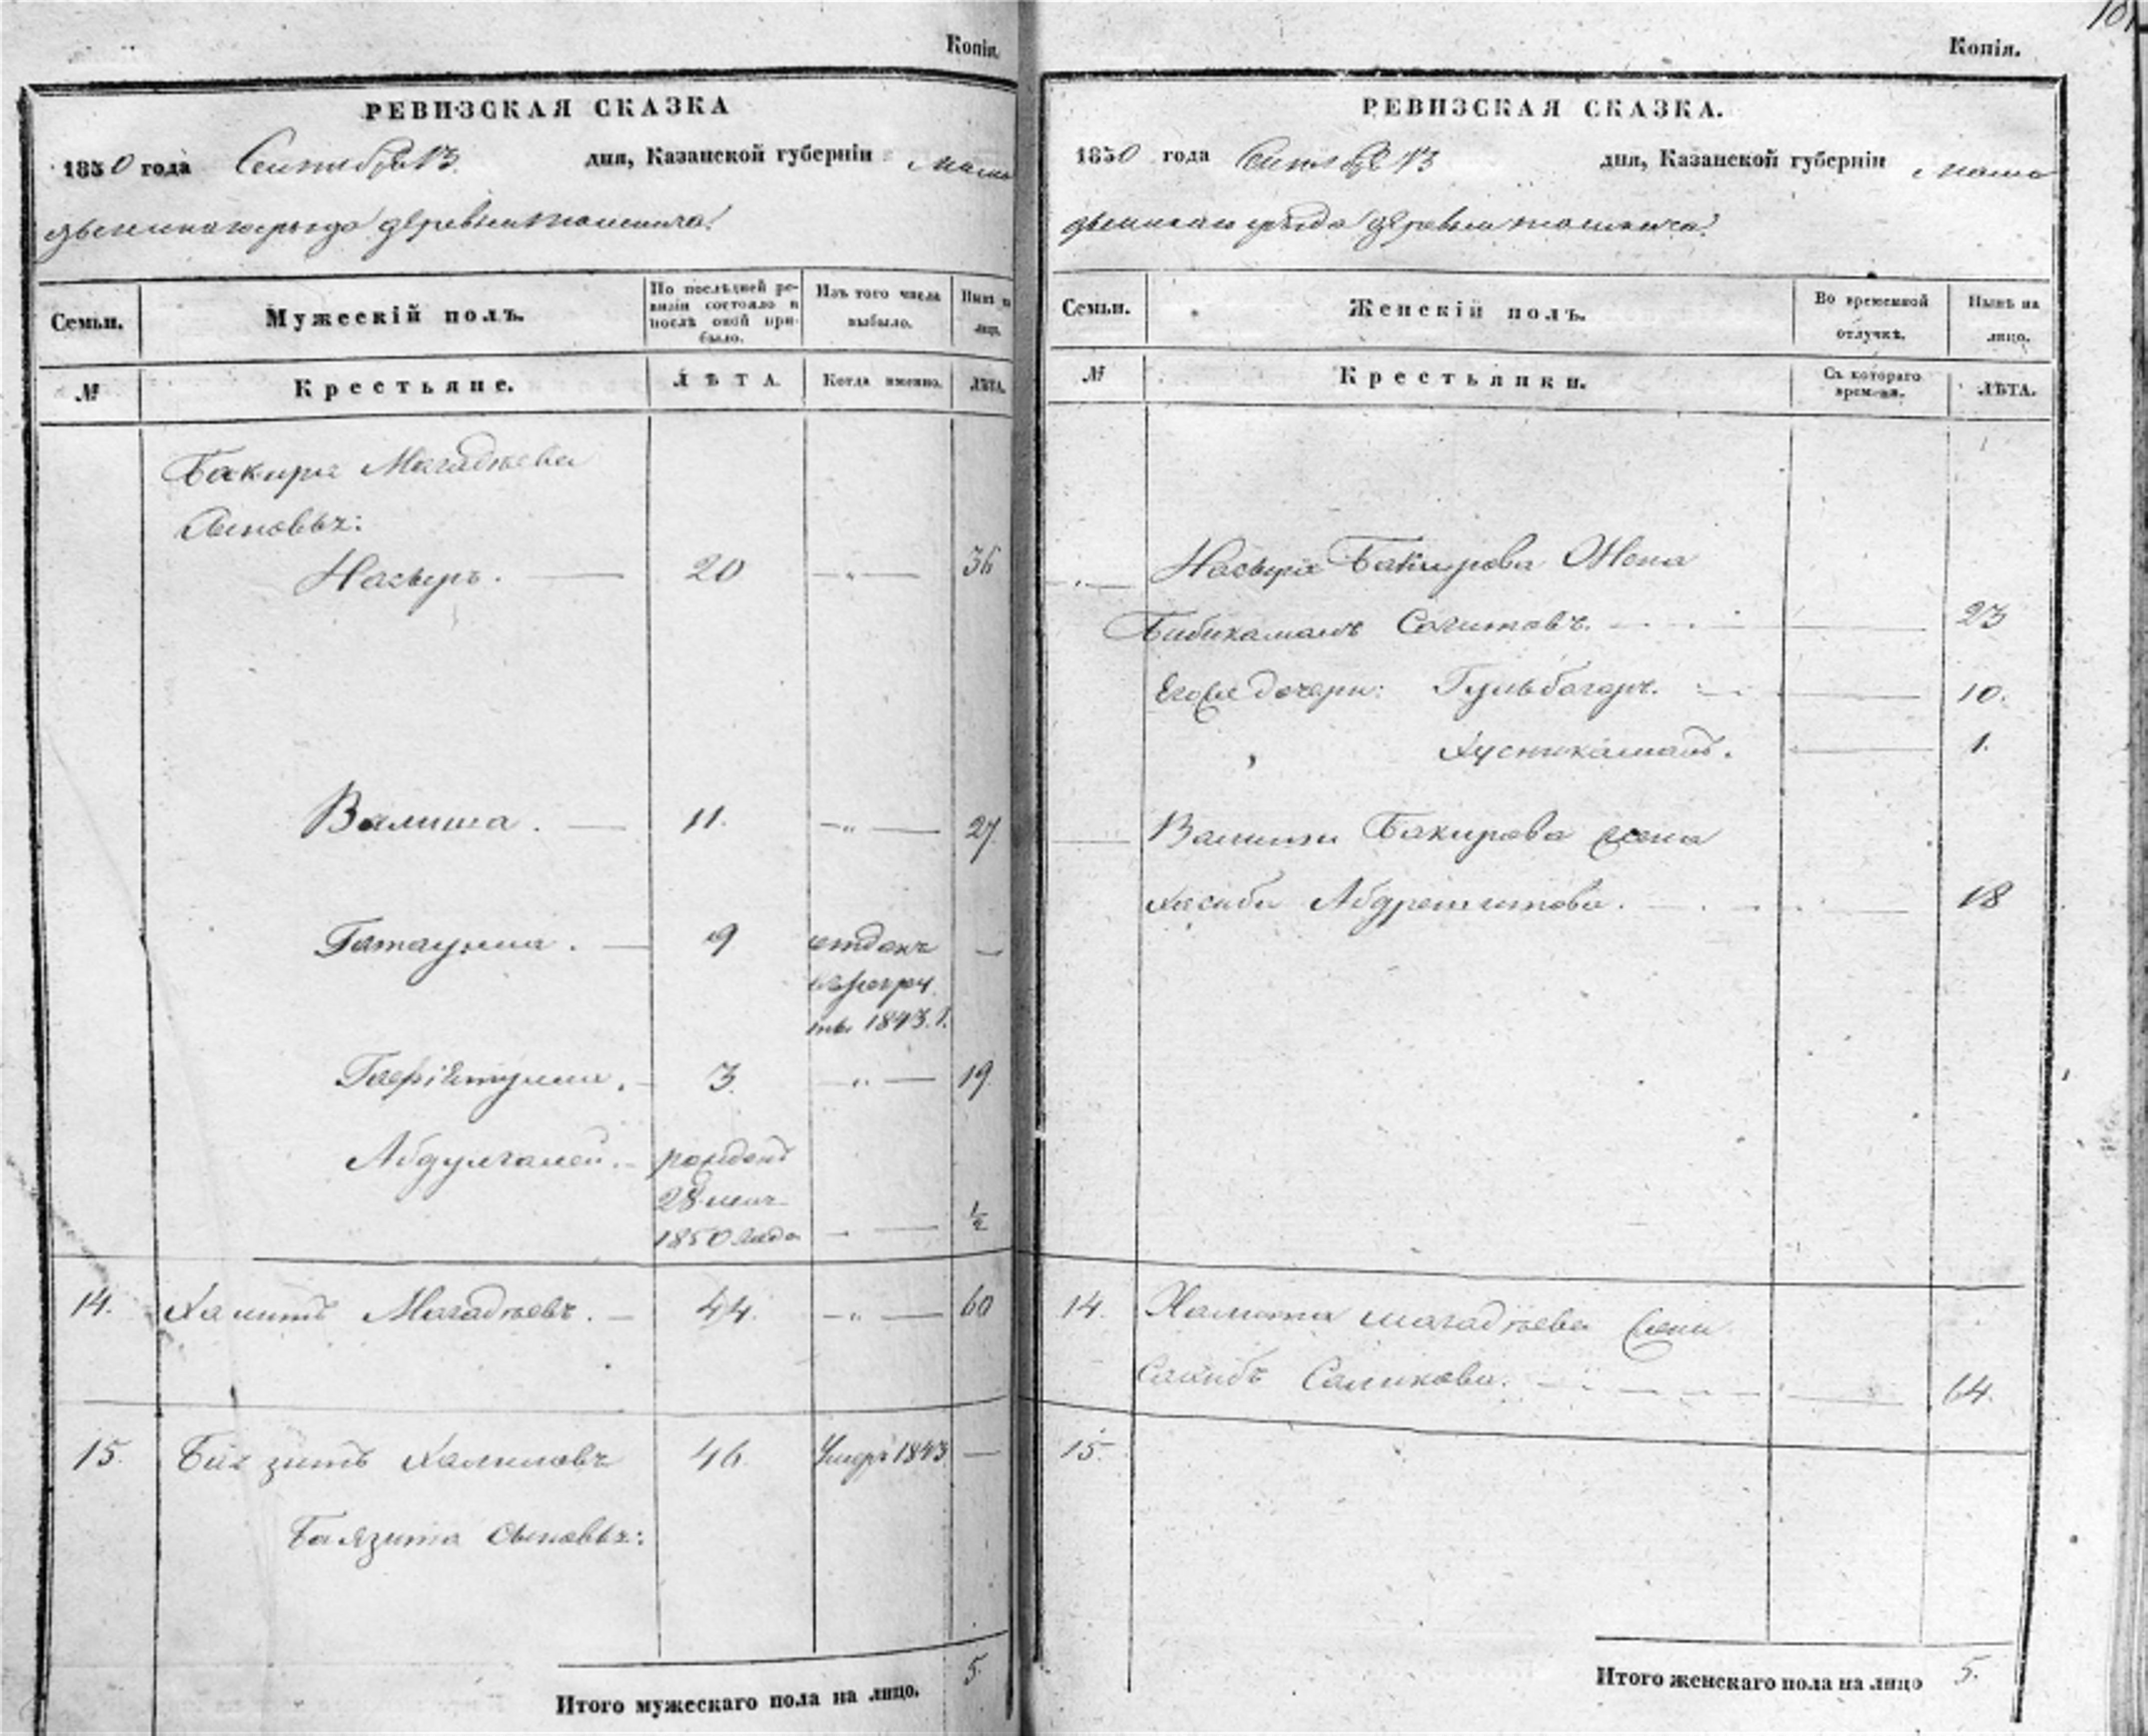 Копія.
РЕВИЗСКАЯ СКАЗКА
1850 года Сентября 13 дня, Казанской губерніи Мама
дышскаго уѣзда деревни
Семьи.
Мужескій полъ.
По послѣдней ре-
визіи состояло и
послѣ оной при-
было.
Изъ того числа
выбыло.
Нынѣ на
лицо.
№
Крестьяне.
ЛѢТА.
Когда именно.
ЛѢТА.
Бакира Магадѣева
Сыновья:
Насыръ. 20 — 36
Валиша. 11. — 27
Гатаулла. 9 отданъ —
въ рекру
ты 1843. Г.
3. — 19
Абдулгалей. рожденъ
28
1850 года — ½
14. Хамитъ Магадѣевъ. 44. — 60
15. Баязитъ Халиловъ 46. Умеръ 1843 —
Баязита Сыновья:
Итого мужескаго пола на лицо. 5.
Копія.
РЕВИЗСКАЯ СКАЗКА.
1850 года Сентября 13 дня, Казанской губерніи Мама
дышскаго уѣзда деревни
Семьи.
Женскій полъ.
Во временной
отлучкѣ.
Нынѣ на
лицо.
№
Крестьянки.
Съ котораго
времени.
ЛѢТА.
Насыра Бакирова Жена
Бибикамалъ 23
Его дочери: Гульбагаръ. 10.
Хусникамалъ. 1.
Валиши Бакирова жена
Хасиба Абдрешитова. 18
14. Хамита Магадѣева жена
Саликова. 64.
15.
Итого женскаго пола на лицо 5.